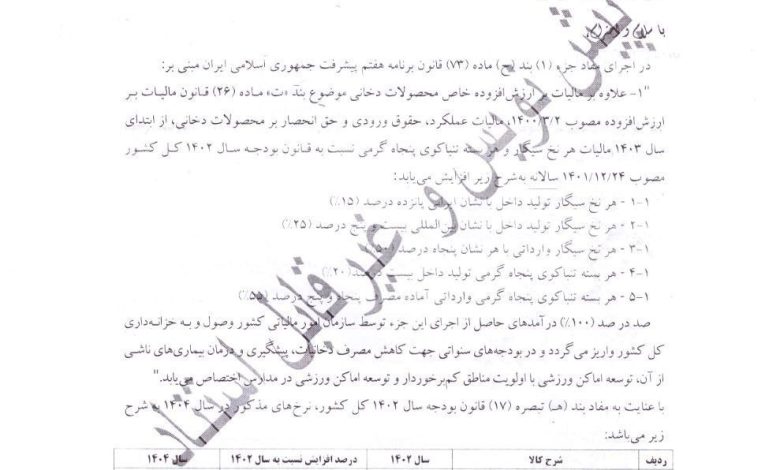 با سلام و احترام
در اجرای مفاد جزء (۱) بند (ح) ماده (۷۳) قانون برنامه هفتم پیشرفت جمهوری اسلامی ایران مبنی بر:
"۱- علاوه بر مالیات بر ارزش‌افزوده خاص محصولات دخانی موضوع بند «ت» ماده (۲۶) قانون مالیات بر
ارزش‌افزوده مصوب ۱۴۰۰/۳/۲، مالیات عملکرد، حقوق ورودی و حق انحصار بر محصولات دخانی، از ابتدای
سال ۱۴۰۳ مالیات هر نخ سیگار و هر بسته تنباکوی پنجاه گرمی نسبت به قانون بودجه سال ۱۴۰۲ کل کشور
مصوب ۱۴۰۱/۱۲/۲۴ سالانه به‌شرح زیر افزایش می‌یابد:
۱-۱- هر نخ سیگار تولید داخل با نشان ایرانی پانزده درصد (۱۵٪)
۲-۱- هر نخ سیگار تولید داخل با نشان بین‌المللی بیست و پنج درصد (۲۵٪)
۳-۱- هر نخ سیگار وارداتی با هر نشان پنجاه درصد (۵۰٪)
۴-۱- هر بسته تنباکوی پنجاه گرمی تولید داخل بیست درصد (۲۰٪)
۵-۱- هر بسته تنباکوی پنجاه گرمی وارداتی آماده مصرف پنجاه و پنج درصد (۵۵٪)
صد در صد (۱۰۰٪) درآمدهای حاصل از اجرای این جزء توسط سازمان امور مالیاتی کشور وصول و به خزانه‌داری
کل کشور واریز می‌گردد و در بودجه‌های سنواتی جهت کاهش مصرف دخانیات، پیشگیری و درمان بیماری‌های ناشی
از آن، توسعه اماکن ورزشی با اولویت مناطق کم‌برخوردار و توسعه اماکن ورزشی در مدارس اختصاص می‌یابد."
با عنایت به مفاد بند (هـ) تبصره (۱۷) قانون بودجه سال ۱۴۰۲ کل کشور، نرخ‌های مذکور در سال ۱۴۰۴ به شرح
زیر می‌باشد:
ردیف شرح کالا سال ۱۴۰۲ درصد افزایش نسبت به سال ۱۴۰۲ سال ۱۴۰۴
پیش نویس و غیر قابل استناد